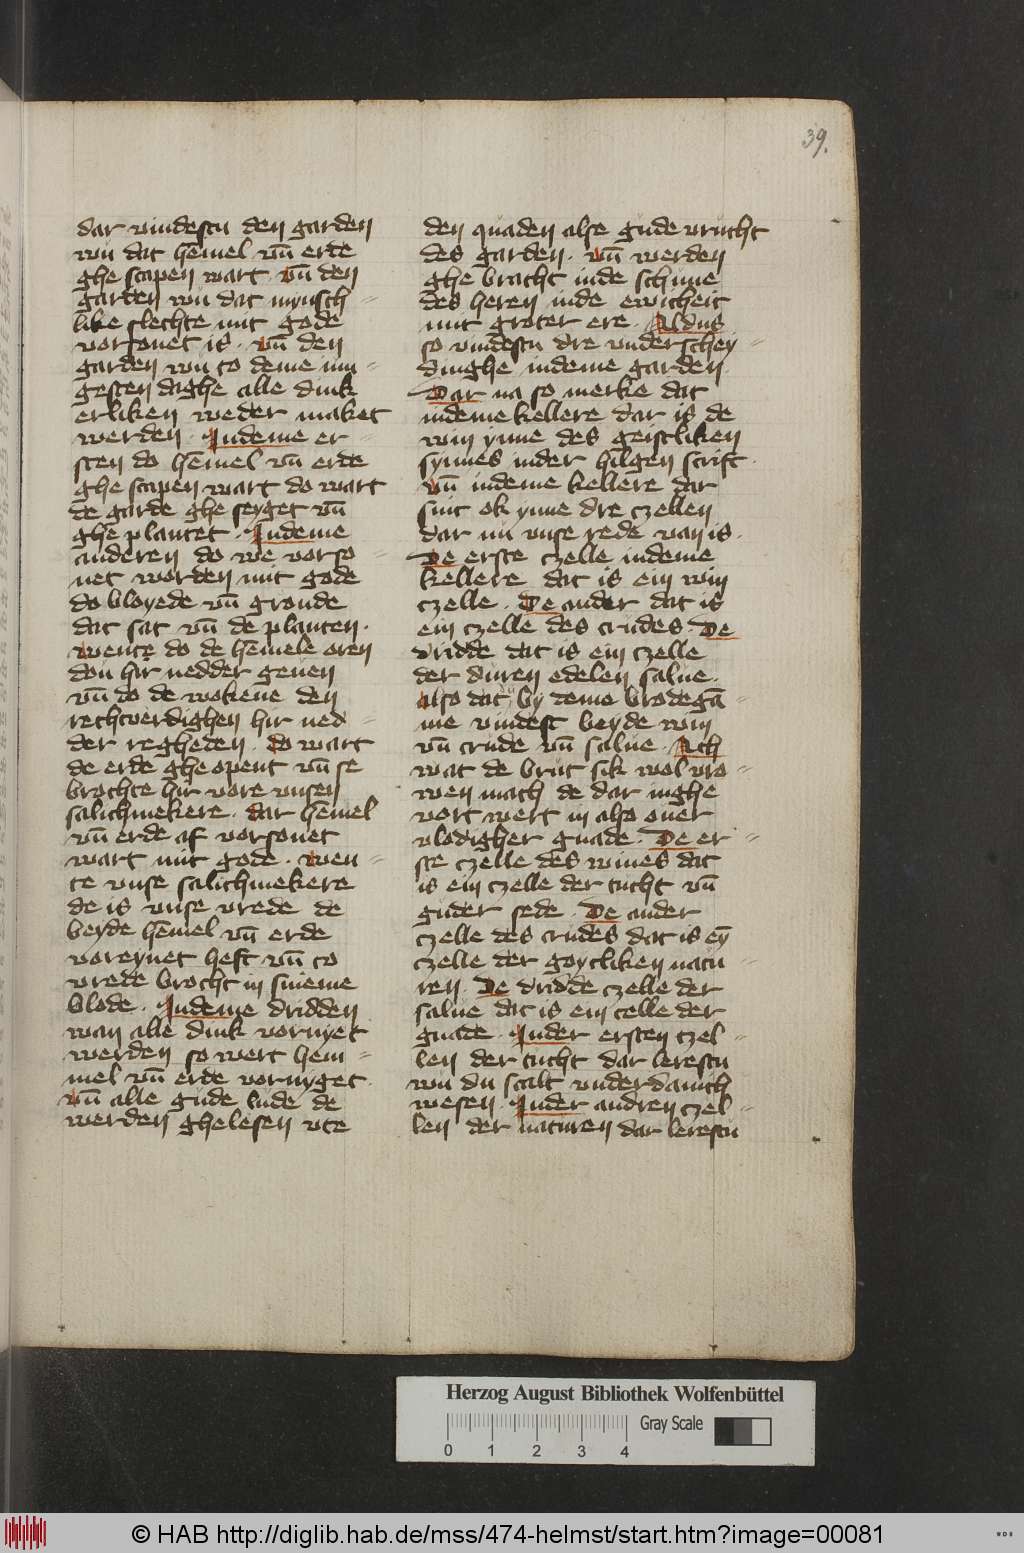 39.
dar vindestu den garden
wu dat hēmel vn̄ erde
ghe scapen wart vn̄ den
garden wu dat mynsch
like slechte mit gode
vorsonet is. vn̄ den
garden wu to deme iun
gesten daghe alle dink
erliken weder maket
werden. Indeme er
sten do hēmel vn̄ erde
ghe scapen wart do wart
de garde ghe seyget vn̄
ghe plantet. Indeme
anderen do we vorso
net worden mit gode
do bloyede vn̄ gronde
dat sat vn̄ de planten.
wente do de hēmele oren
dou hir nedder geuen
vn̄ do de wolkene den
rechtverdighen hir ned
der regheden. do wart
de erde ghe opent vn̄ se
brochte hir vore vnsen
salichmekere. dar hēmel
vn̄ erde af vorsonet
wart mit gode. wen
te vnse salichmekere
de is vnse vrede de
beyde hēmel vn̄ erde
voreynet heft vn̄ to
vrede brocht in sineme
blode. Indeme dridden
wan alle dink vornyet
werden so wert hem
mel vn̄ erde vornyget
vn̄ alle gude lude de
werden ghelesen vte
den quaden alse gude vrucht
des garden. vn̄ werden
ghe bracht inde schune
des heren inde ewicheit
mit groter ere. Aldus
so vindestu dre vnderschey
dinghe indeme garden.
Dar na so merke dat
indeme kellere dar is de
win ynne des geistliken
synnes inder hilgen scrift.
vn̄ indeme kellere dar
sint ok ynne dre czellen
dar nu vnse rede van is.
De erste czelle indeme
kellere dat is ein win
czelle. De ander dat is
ein czelle des crudes. De
dridde dat is ein czelle
der duren edelen salue.
also dat by deme brodegā
me vindest beyde win
vn̄ crude vn̄ salue. Ach
wat de brut sik wol vro
wen mach de dar inghe
vort wert in also ouer
vlodigher gnade. De er
ste czelle des wines dat
is ein czelle der tucht vn̄
guder sede. De ander
czelle des crudes dat is eȳ
czelle der goytliken natu
ren. De dridde czelle der
salue dat is ein celle der
gnade. Inder ersten czel
len der tucht dar lerestu
wu du scalt vnderdanich
wesen. Inder andren czel
len der naturen dar lerestu
Herzog August Bibliothek Wolfenbüttel
Gray Scale
0 1 2 3 4
© HAB http://diglib.hab.de/mss/474-helmst/start.htm?image=00081